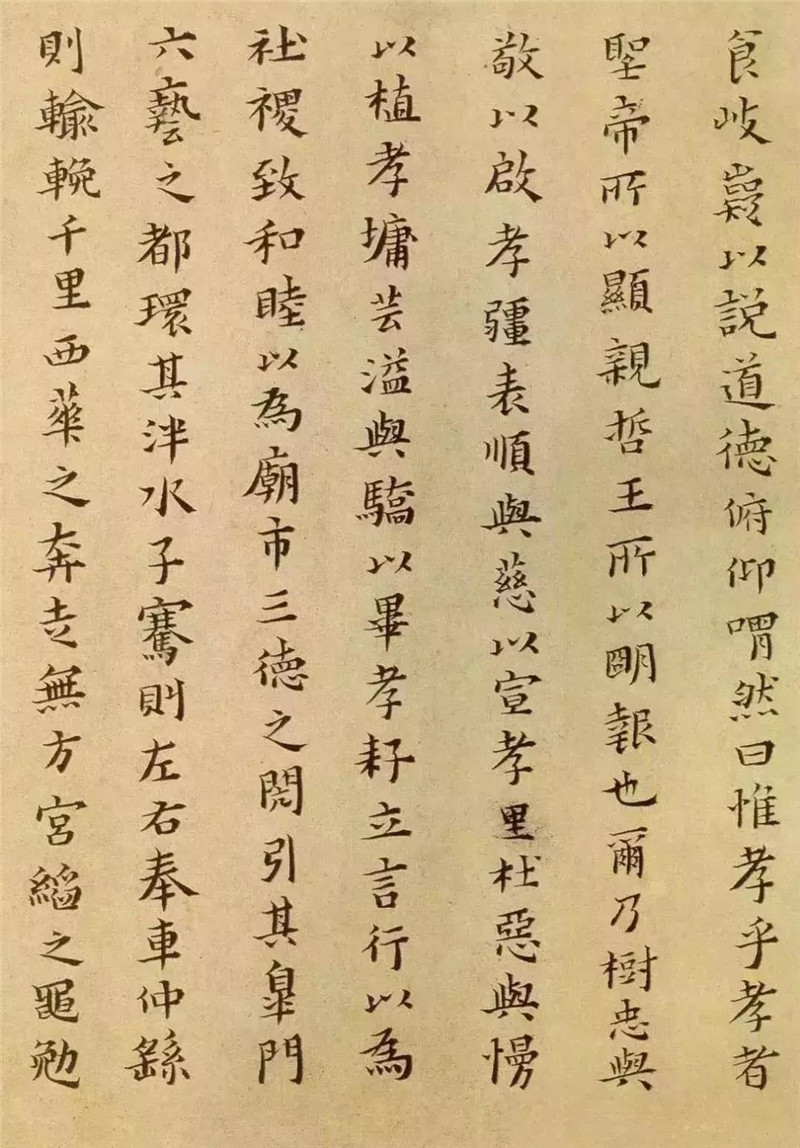 食岐嶷以説道德俯仰喟然曰惟孝乎孝者
聖帝所以顯親哲王所以明報也爾乃樹忠與
敬以啟孝疆表順與慈以宣孝里杜惡與慢
以植孝墉芸溢與驕以畢孝耔立言行以為
社稷致和睦以為廟市三德之閎引其皐門
六藝之都環其泮水子騫則左右奉車仲繇
則輸輓千里西華之奔走無方宮縚之黽勉